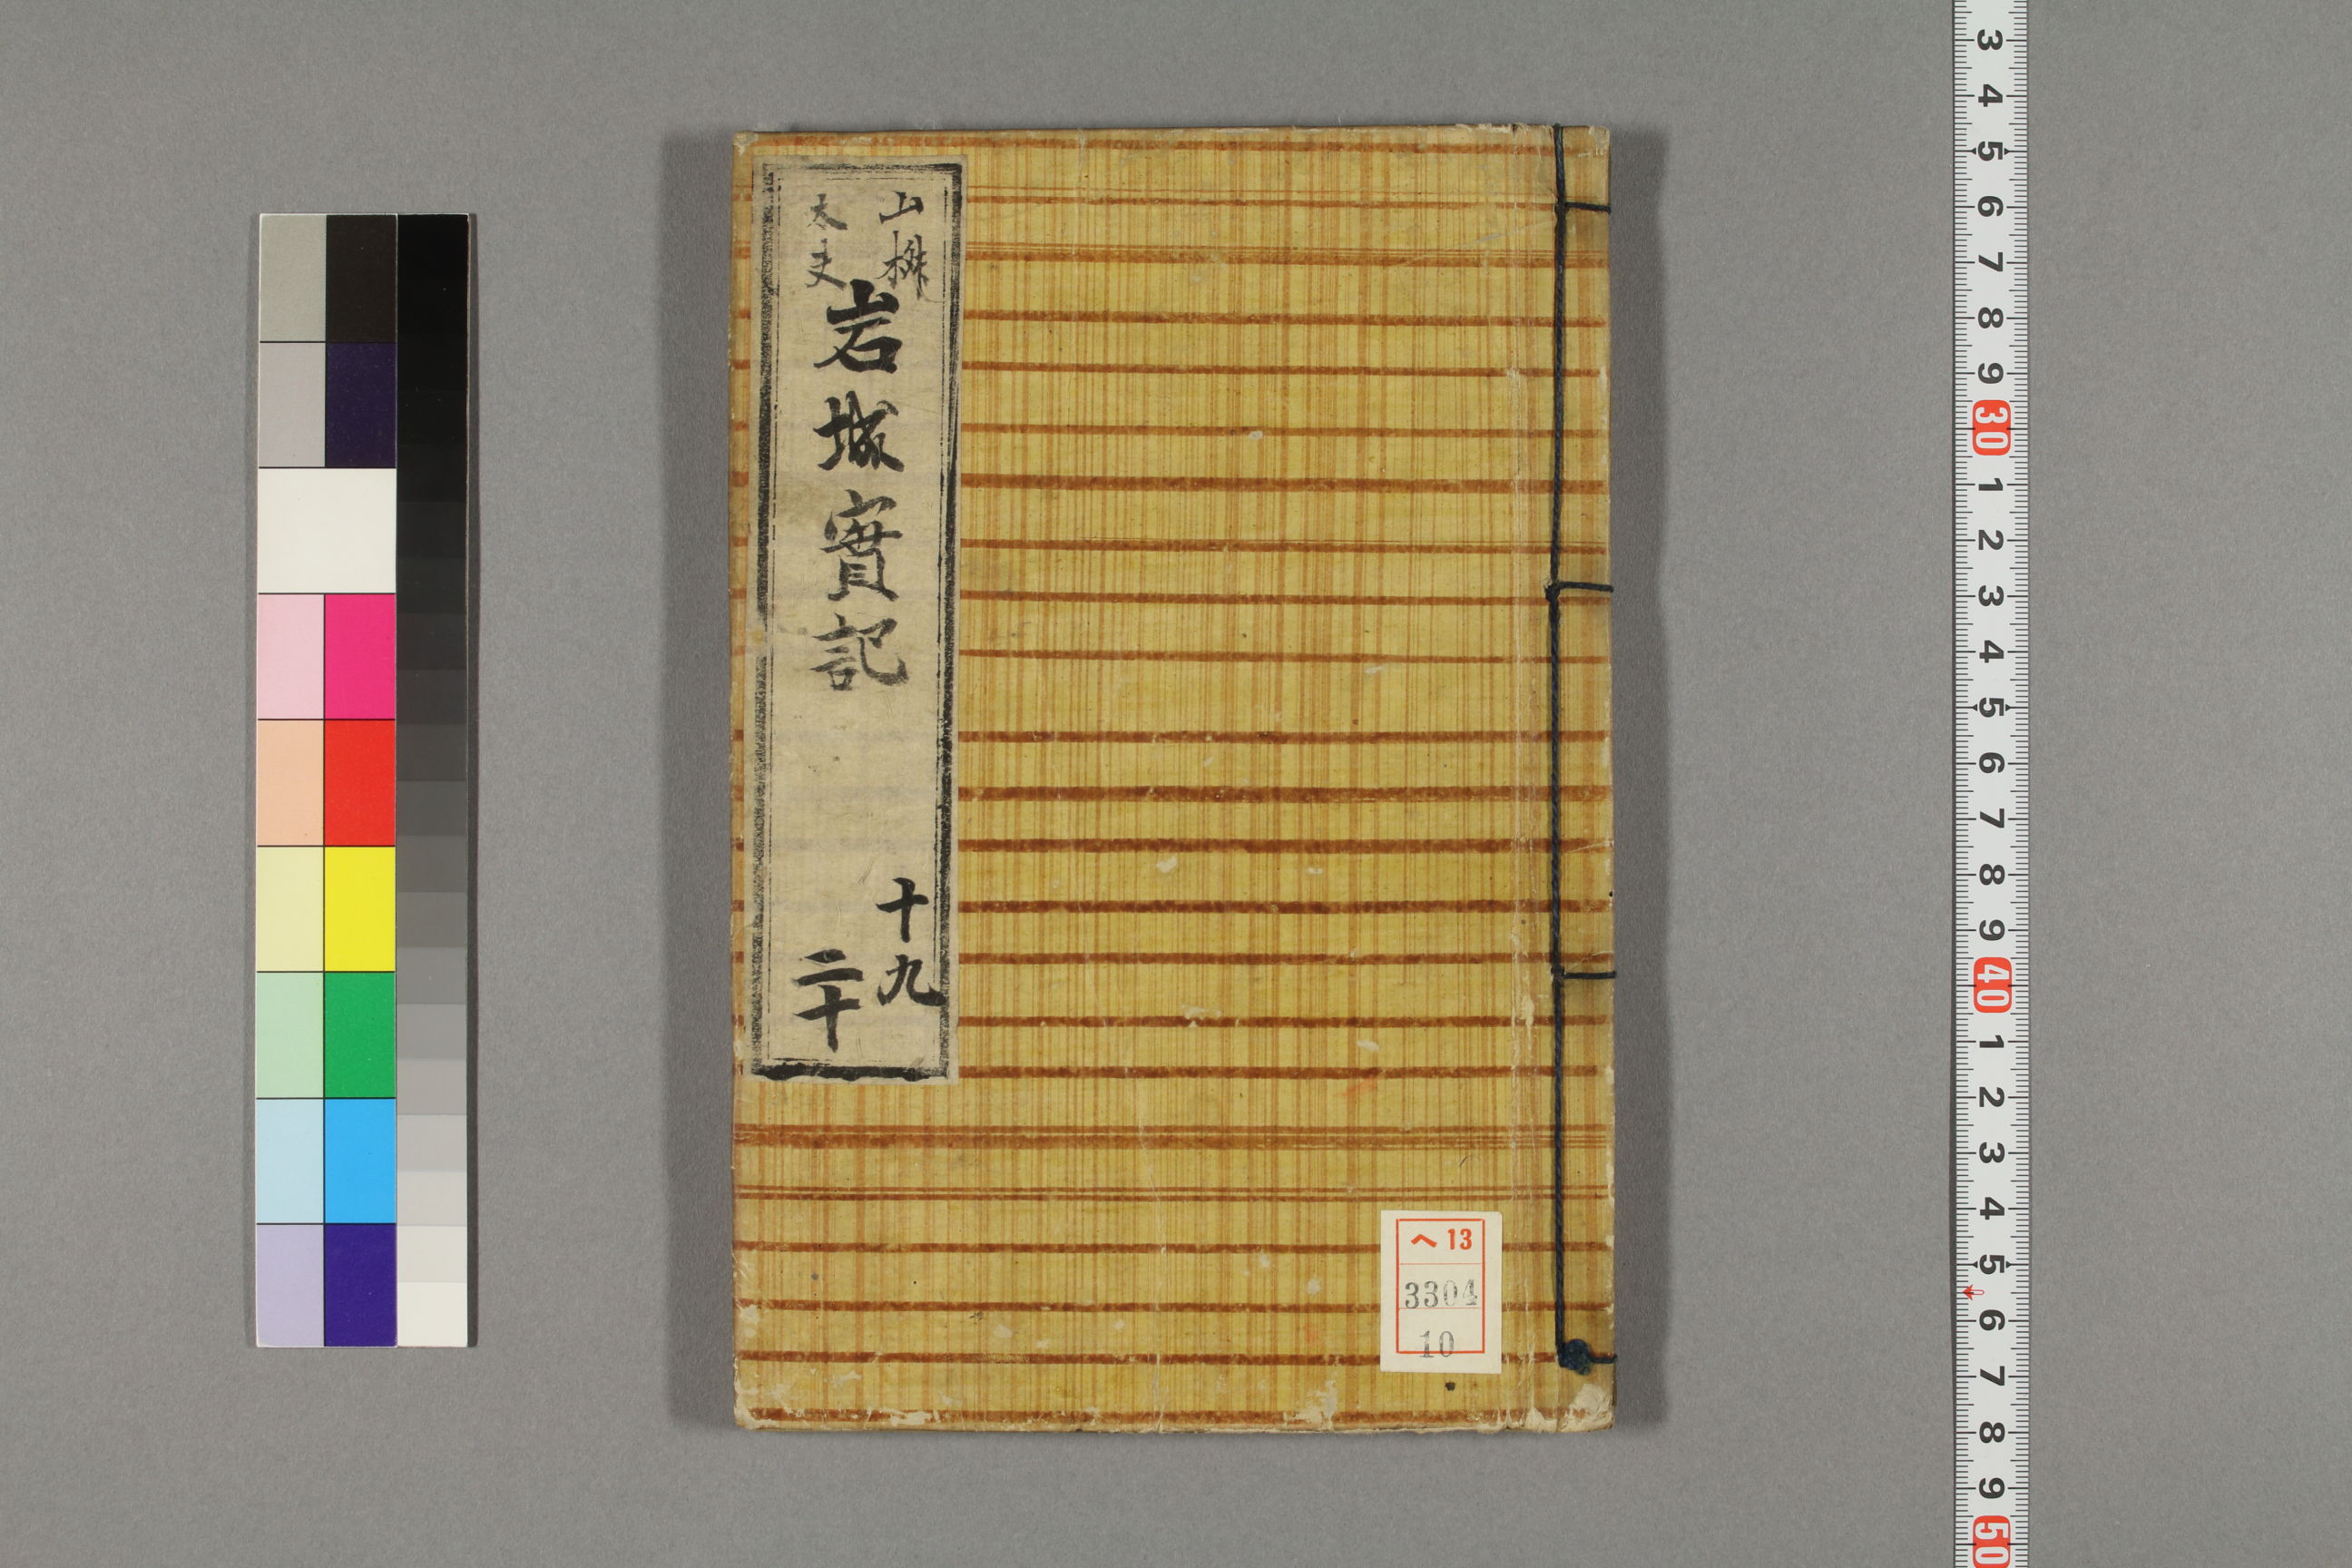 山桝
太夫
岩城實記
十九
二十
へ13
3304
10
3
4
5
6
7
8
9
30
1
2
3
4
5
6
7
8
9
40
1
2
3
4
5
6
7
8
9
50